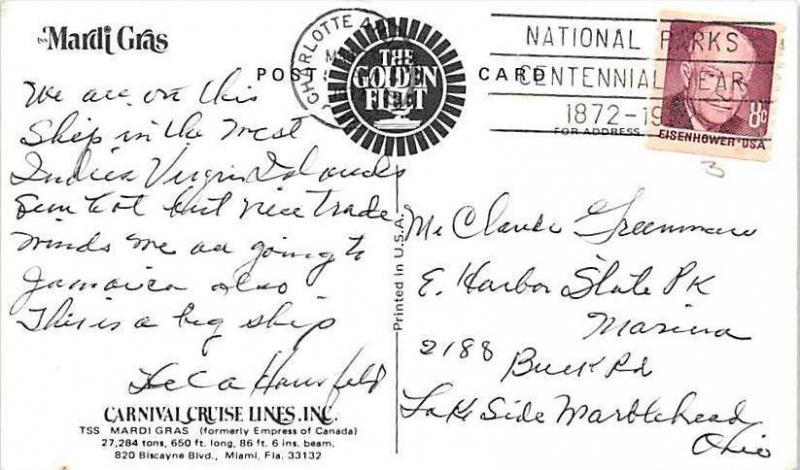 TSS Mardi Gras
POST CARD
CHARLOTTE A
THE
GOLDEN
FLEET
NATIONAL PARKS
CENTENNIAL YEAR
1872-19
FOR ADDRESS
8c
EISENHOWER·USA
3
We are on this
Ship in the West
Indies Virgin Islands
Sun hot but nice trade
winds We are going to
Jamaica also
This is a big ship
Hansfeld
Printed in U.S.A.
Mr Claude Greenman
E. Harbor State Pk
Marina
2188 Buck Rd
Lake Side Marblehead
Ohio
CARNIVAL CRUISE LINES, INC.
TSS MARDI GRAS (formerly Empress of Canada)
27,284 tons, 650 ft. long, 86 ft. 6 ins. beam,
820 Biscayne Blvd., Miami, Fla. 33132